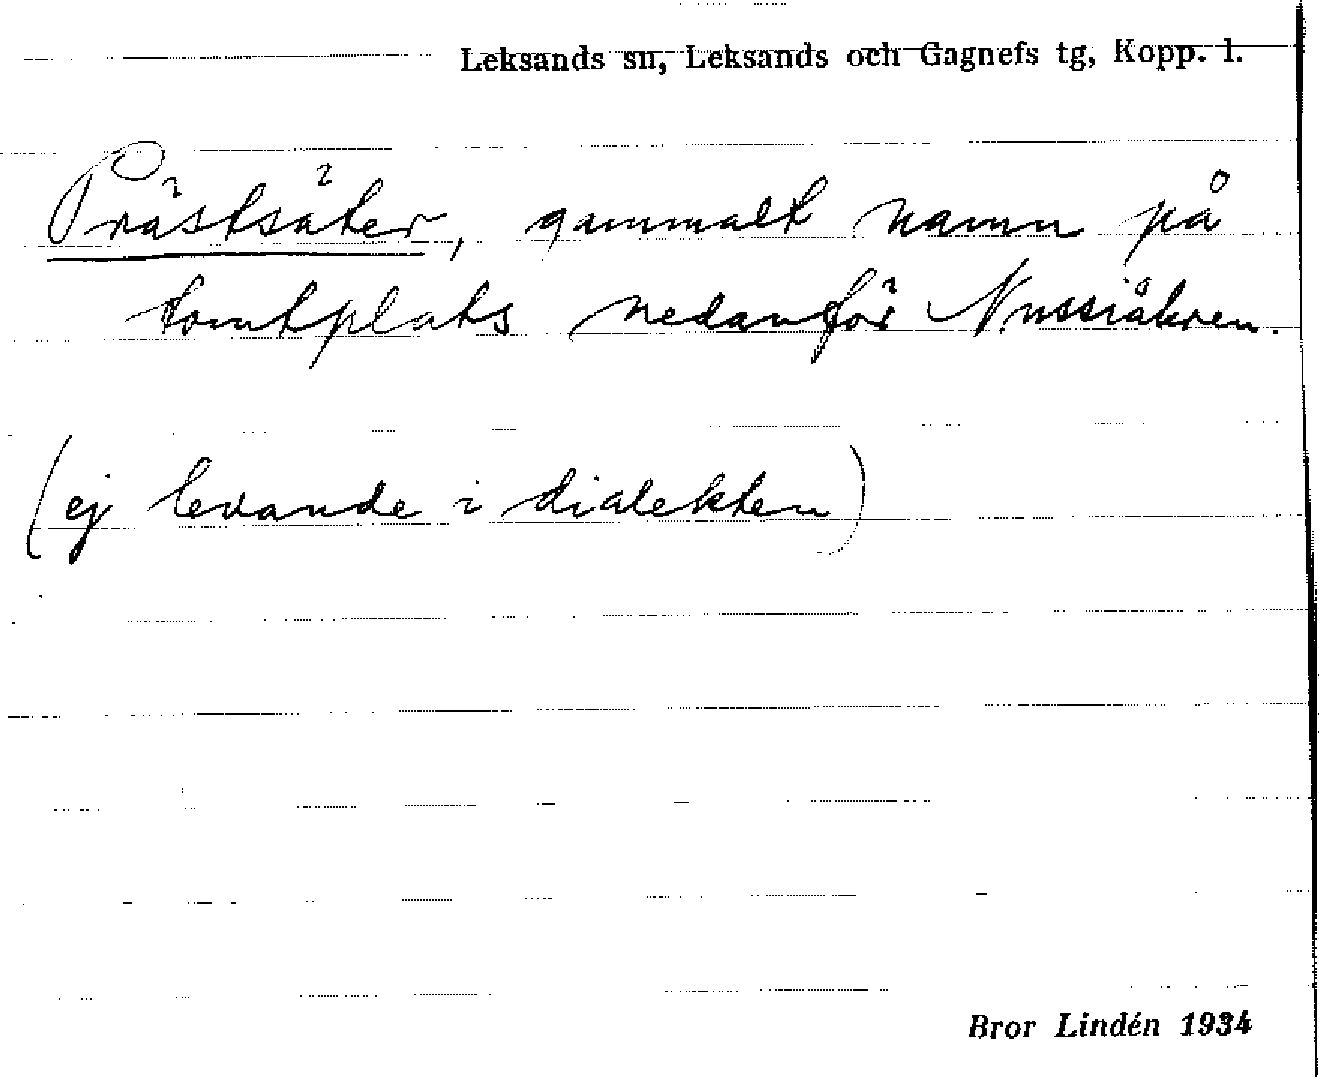 Leksands sn, Leksands och Gagnefs tg, Kopp. l.
Prästsäter, gammalt namn på
tomtplats nedanför Nussiåkren.
(ej levande i dialekten)
Bror Lindén 1934